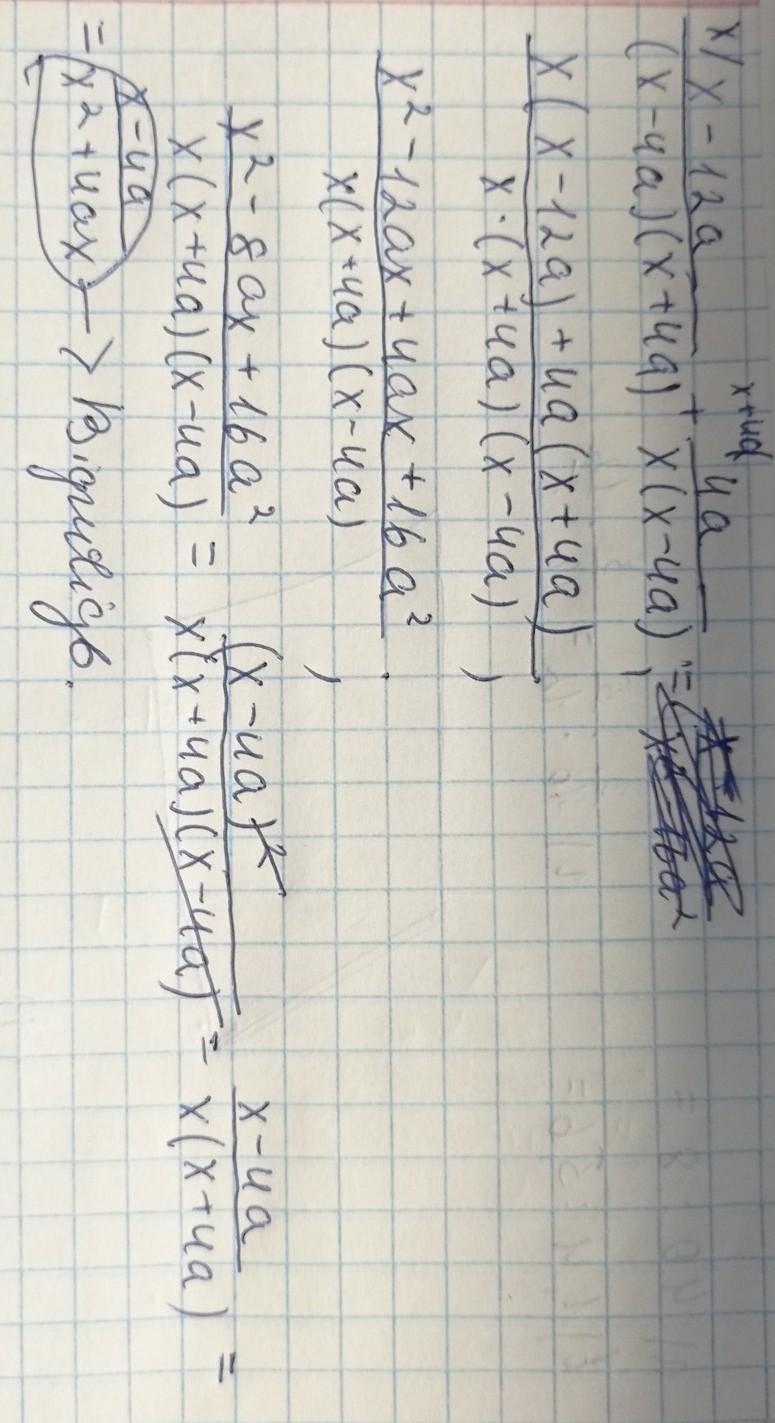 x/ x-12a / (x-4a)(x+4a) + x+4a/ 4a / x(x-4a) =
x(x-12a)+4a(x+4a) / x·(x+4a)(x-4a) ,
x²-12ax+4ax+16a² / x(x+4a)(x-4a) ,
x²-8ax+16a² / x(x+4a)(x-4a) = (x-4a)² / x(x+4a)(x-4a) = x-4a / x(x+4a) =
= x-4a / x²+4ax -> Відповідь.